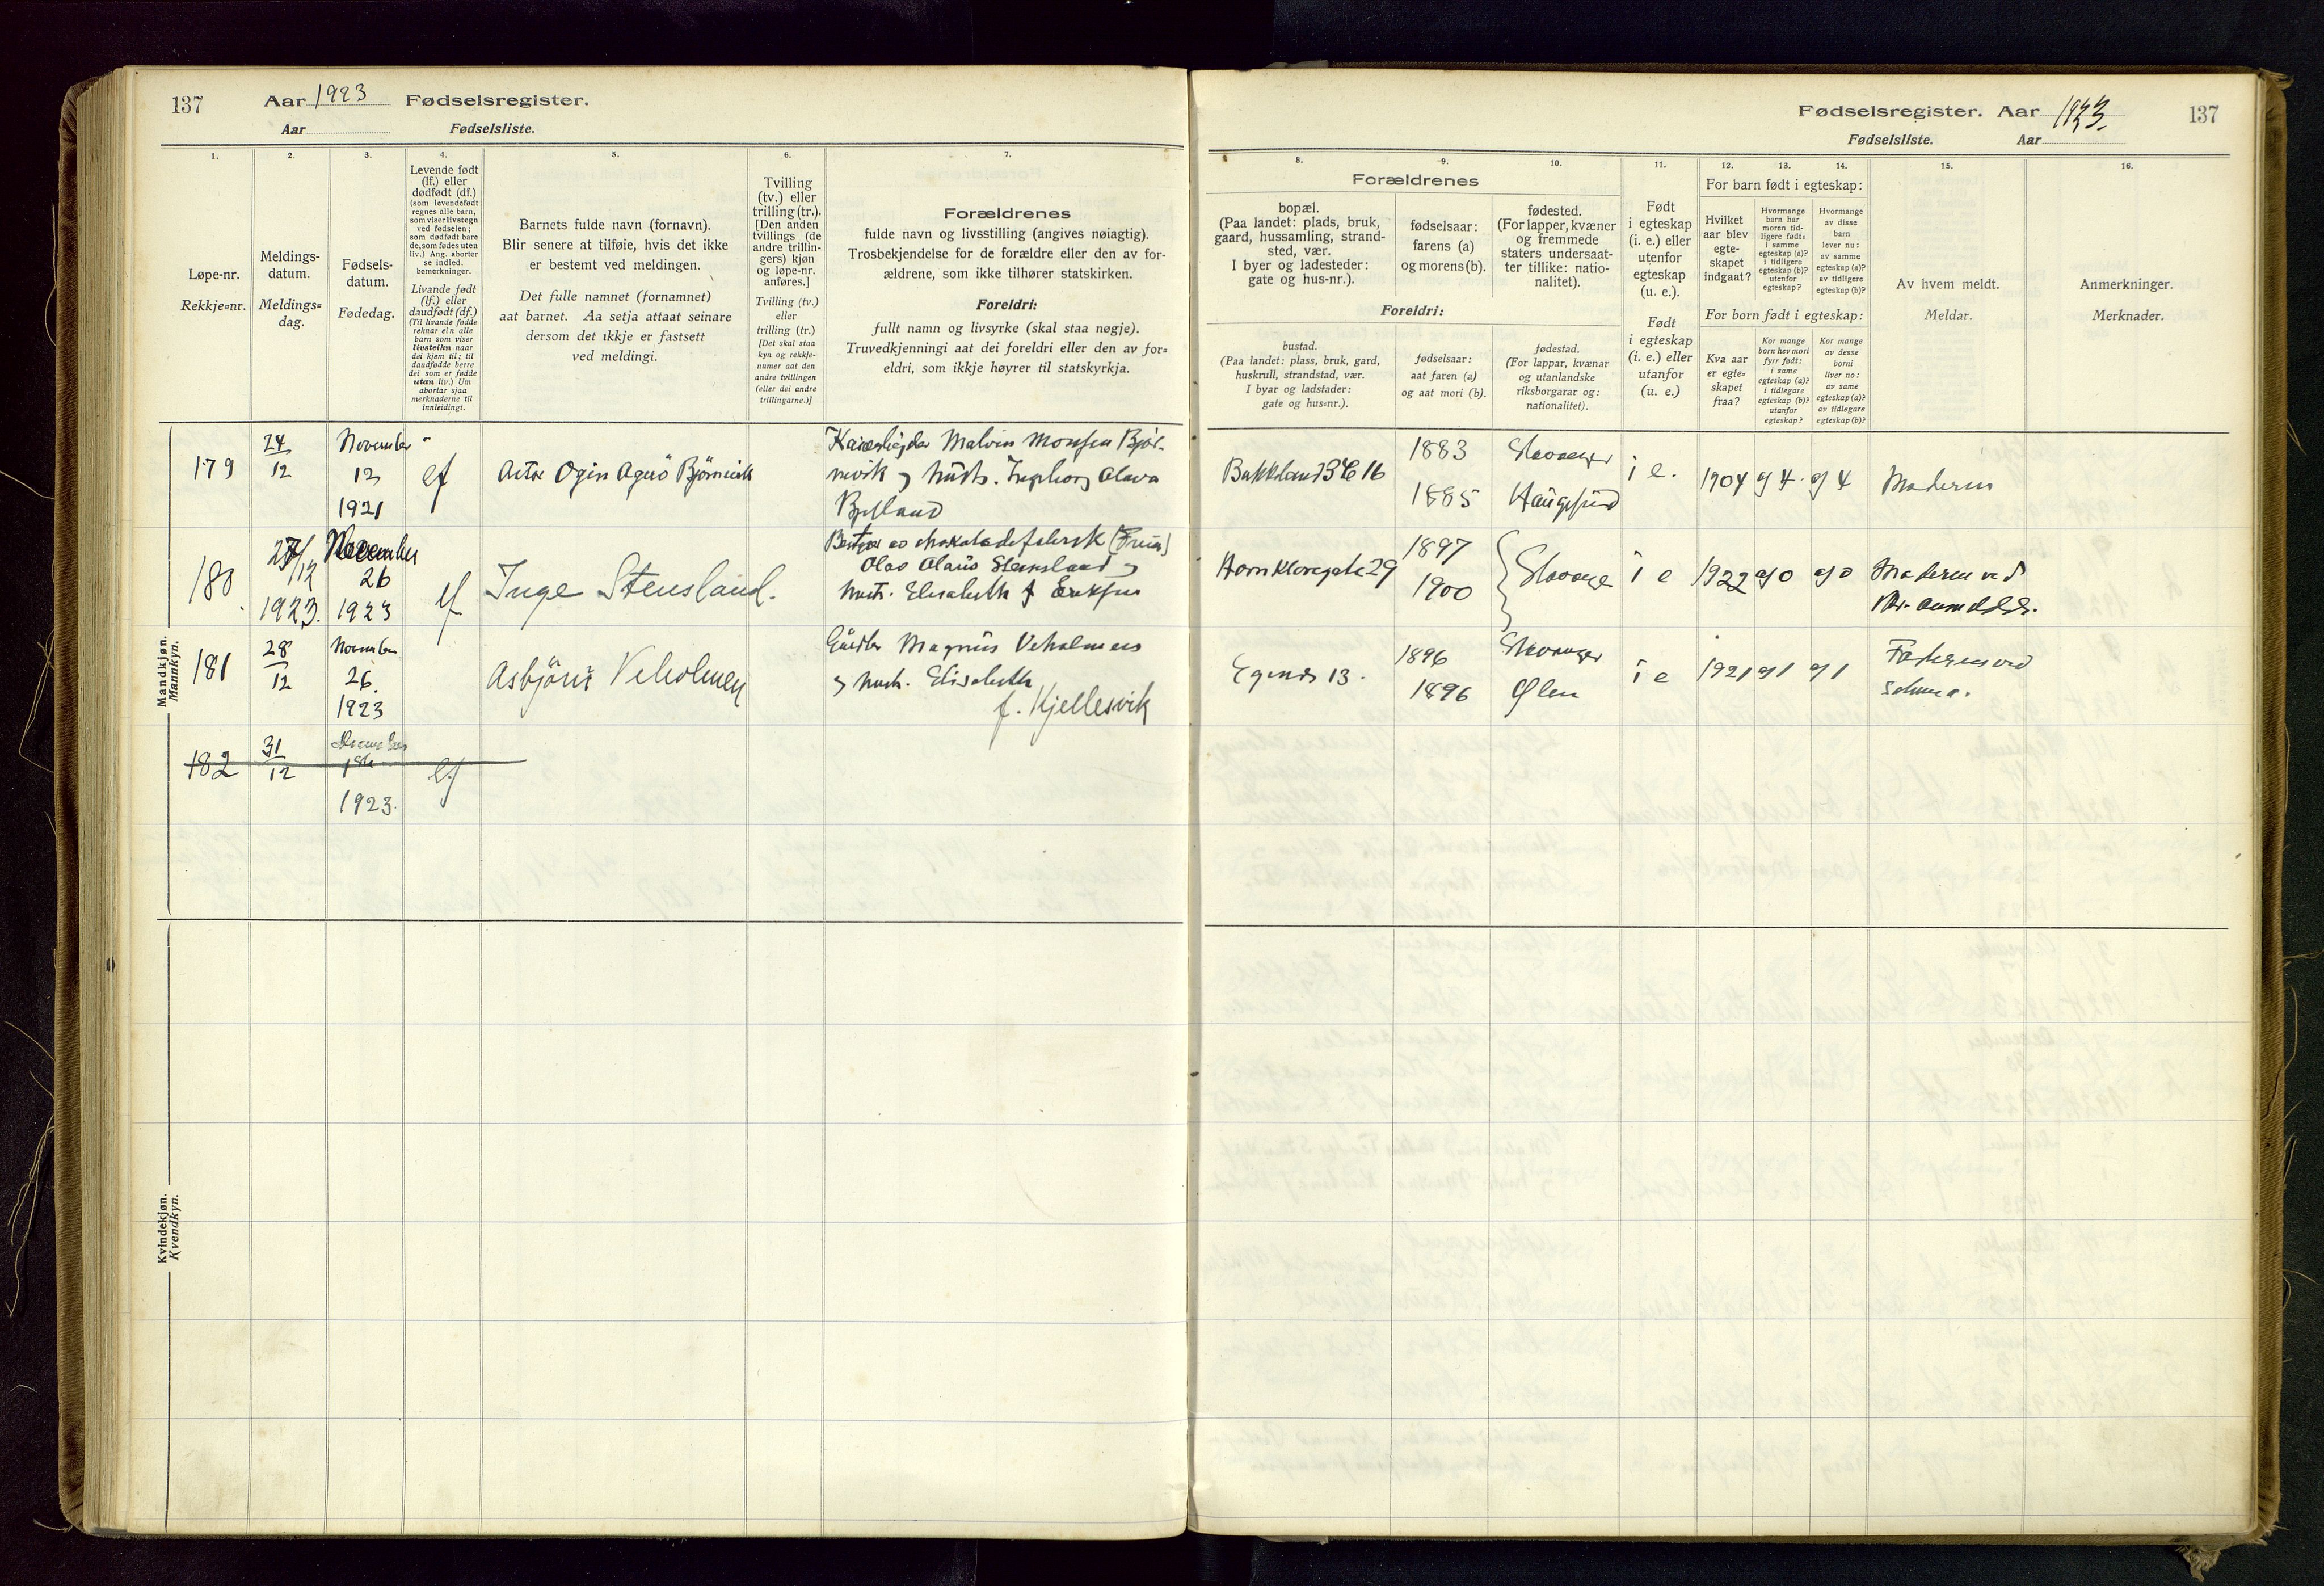 137
Aar 1923 Fødselsregister.
Aar Fødselsliste.
1.
Løpe-nr.
Rekkje=nr.
2.
Meldings-
datum.
Meldings=
dag.
3.
Fødsels-
datum.
Fødedag.
4.
Levende født
(lf.) eller
dødfødt (df.)
(som levendefødt
regnes alle barn,
som viser livstegn
ved fødselen;
som dødfødt bare
de, som fødes uten
liv.) Ang. aborter
se indled.
bemerkninger.
Livande født
(lf.) eller
daudfødt (df.)
(Til livande fødde
reknar ein alle
barn som viser
livsteikn naar
dei kjem til; til
daudfødde berre
dei som er fødde
utan liv.) Um
abortar sjaa
merknaderne til
innleidingi.
5.
Barnets fulde navn (fornavn).
Blir senere at tilføie, hvis det ikke
er bestemt ved meldingen.
Det fulle namnet (fornamnet)
aat barnet. Aa setja attaat seinare
dersom det ikkje er fastsett
ved meldingi.
6.
Tvilling
(tv.) eller
trilling (tr.).
[Den anden
tvillings (de
andre trillin-
gers) kjøn
og løpe-nr.
anføres.]
Tvilling (tv.)
eller
trilling (tr.)
[Det skal staa
kyn og rekkje-
numer aat den
andre tvillingen
(eller dei andre
trillingarne.)]
7.
Forældrenes
fulde navn og livsstilling (angives nøiagtig).
Trosbekjendelse for de forældre eller den av for-
ældrene, som ikke tilhører statskirken.
Foreldri:
fullt namn og livsyrke (skal staa nøgje).
Truvedkjenningi aat dei foreldri eller den av for=
eldri, som ikkje høyrer til statskyrkja.
Mandkjøn.
Mannkyn.
179
24
12
November
12
1921
lf
Ogin Agnö Björnevik
Malvin Monsen Björ-
nevik og hust. Ingeborg Olava
180
12
1923.
November
26
1923
lf
Inge Stensland.
Olav Olaus Stensland og
hust. Elisabeth f Eriksen
181
28
12
November
26.
1923
Asbjörn Veholmen
Magnus Veholmen
og hust. Elisabeth
f. Kjellesvik
182
31
12
December
1923.
lf
Kvindekjøn.
Kvendkyn.
Fødselsregister. Aar 1923. 137
Fødselsliste. Aar
8.
Forældrenes
bopæl.
(Paa landet: plads, bruk,
gaard, hussamling, strand-
sted, vær.
I byer og ladesteder:
gate og hus-nr.).
9.
fødselsaar:
farens (a)
og morens (b).
10.
fødested.
(For lapper, kvæner
og fremmede
staters undersaat-
ter tillike: natio-
nalitet).
Foreldri:
bustad.
(Paa landet: plass, bruk, gard,
huskrull, strandstad, vær.
I byar og ladstader:
gate og hus=nr.).
fødselsaar:
aat faren (a)
og aat mori (b).
fødestad.
(For lappar, kvænar
og utanlandske
riksborgarar og:
nationalitet).
11.
Født
i egteskap
(i. e.) eller
utenfor
egteskap
(u. e.).
Født
i egteskap
(i. e.) eller
utanfor
(u. e.)
12.
13.
14.
For barn født i egteskap:
Hvilket
aar blev
egte-
skapet
indgaat?
Hvormange
barn har
moren tid-
ligere født:
i samme
egteskap (a)?
i tidligere
egteskap (b)?
utenfor
egteskap?
Hvormange
av disse
barn
lever nu:
av samme
egteskap (a)?
av tidligere
egteskap (b)?
For born født i egteskap:
Kva aar
er egte=
skapet
fraa?
Kor mange
barn hev mori
fyrr født:
i same
egteskap (a)?
i tidlegare
egteskap (b)?
utanfor
egteskap?
Kor mange
av desse
borni
liver no:
av same
egteskap (a)?
av tidlegare
egteskap (b)?
15.
Av hvem meldt.
Meldar.
16.
Anmerkninger.
Merknader.
16
1883
1885
Stavanger
Haugesund
i e.
1904 a) 4. a) 4
Moderen
29
1897
1900
Stavanger
i e
1922 a) 0 a) 0
Moderen ved
Egenes 13.
1896
1896
Stavanger
Ølen
i e
1921 a) 1 a) 1
Faderen ved